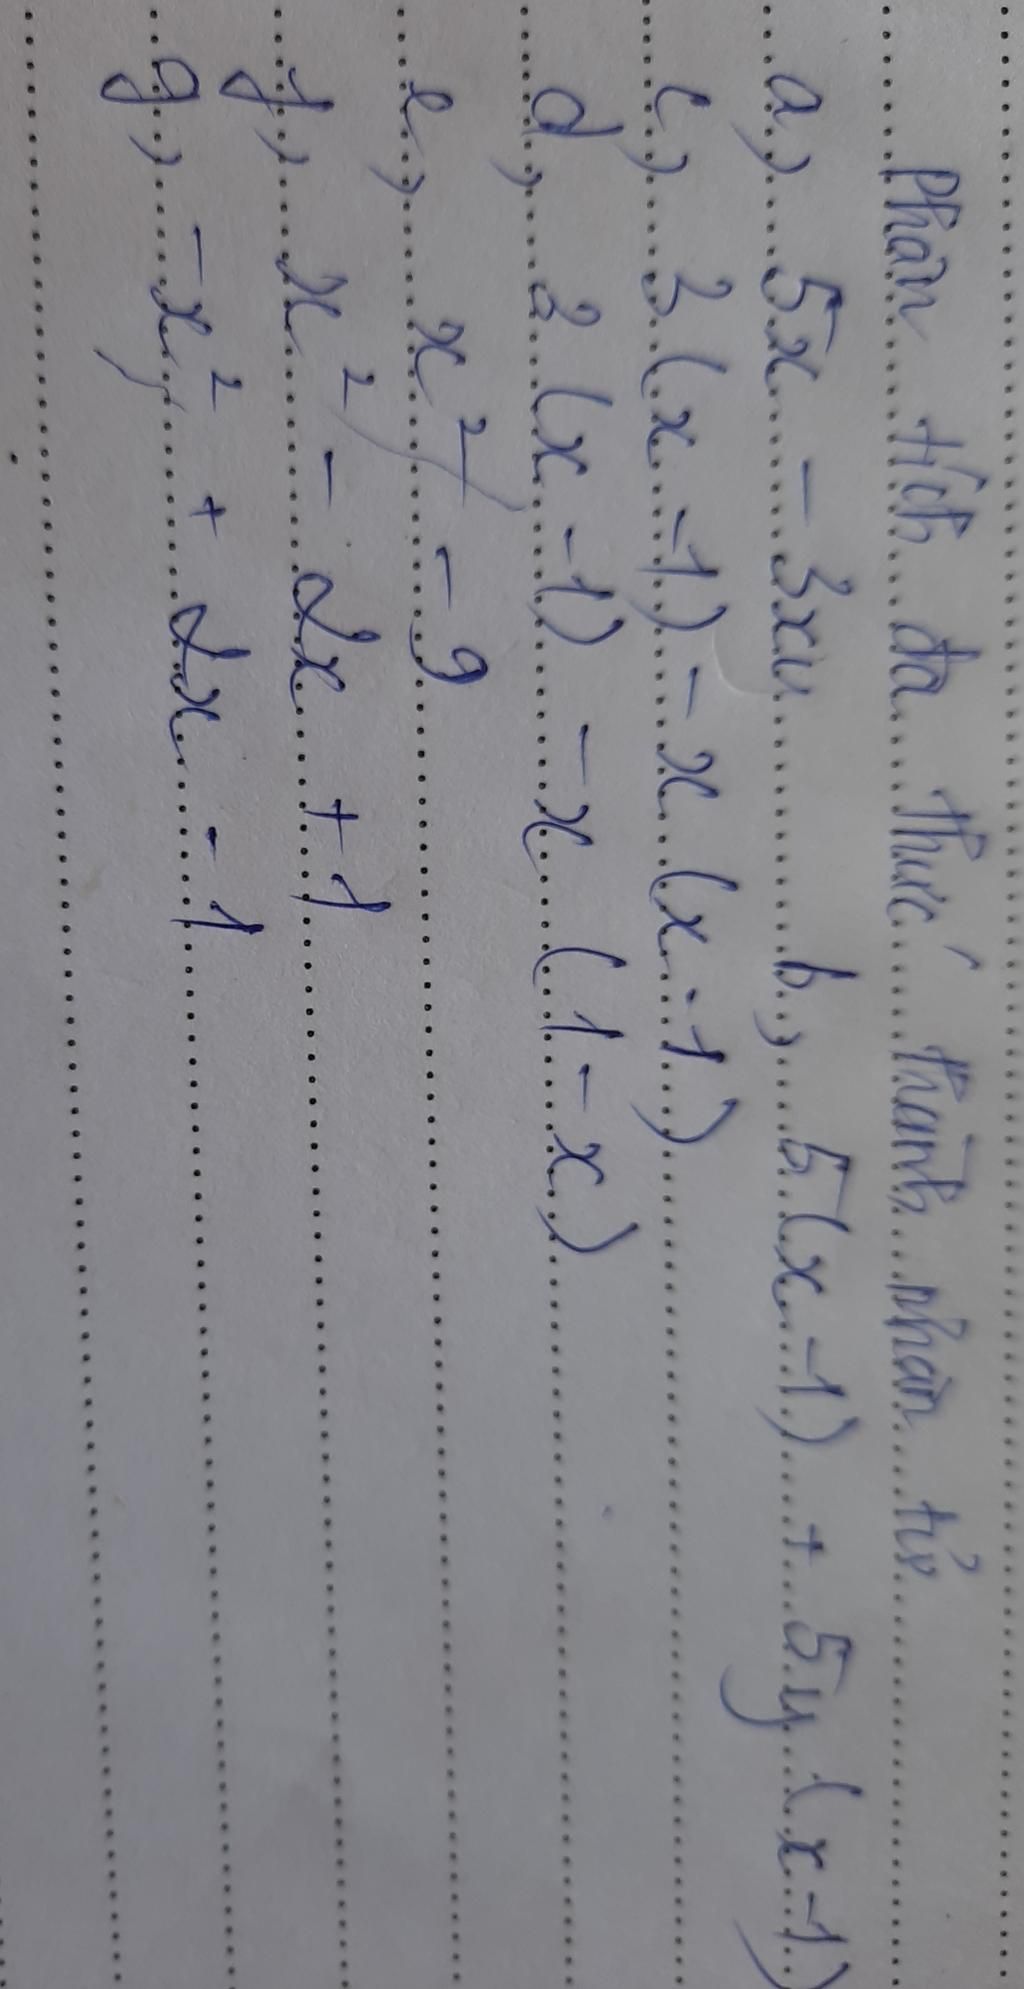 Phân tích đa thức thành nhân tử
a, 5x - 3xy b, 5(x-1) + 5y(x-1)
c, 3(x-1) - x(x-1)
d, 2(x-1) - x(1-x)
e, x² - 9
f, x² - 2x + 1
g, -x² + 2x - 1